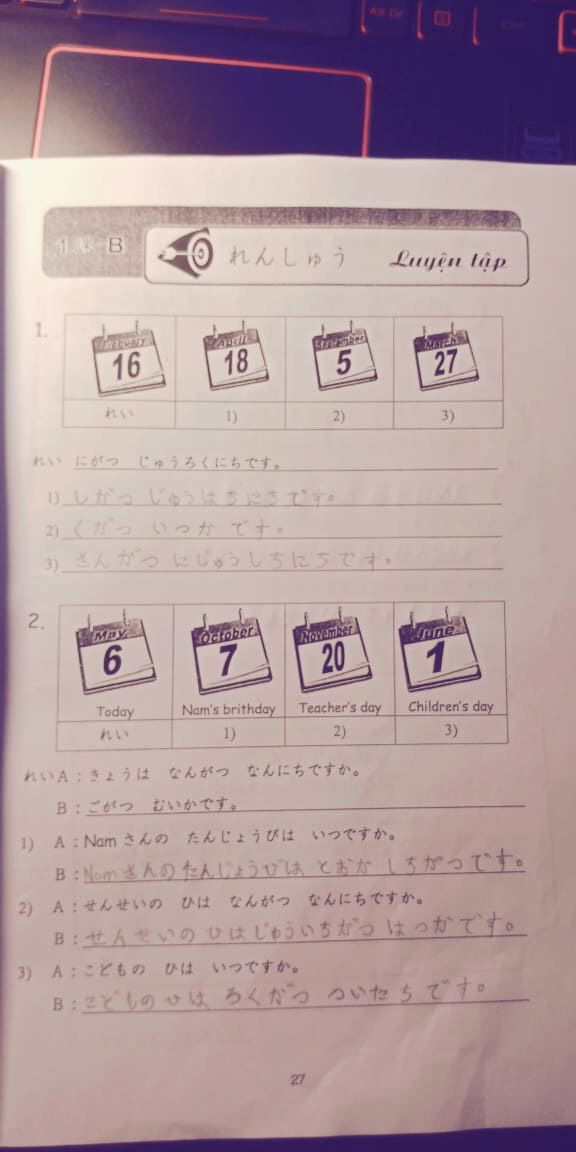 Alt Gr
Ctrl
B れんしゅう Luyện tập
1.
February April September March
16 18 5 27
れい 1) 2) 3)
れい にがつ じゅうろくにちです。
1) しがつ じゅうはちにちです。
2) くがつ いつか です。
3) さんがつ にじゅうしちにちです。
2.
May October November June
6 7 20 1
Today Nam's brithday Teacher's day Children's day
れい 1) 2) 3)
れい A：きょうは なんがつ なんにちですか。
B：ごがつ むいかです。
1) A：Namさんの たんじょうびは いつですか。
B：Namさんのたんじょうびは とおか しちがつです。
2) A：せんせいの ひは なんがつ なんにちですか。
B：せんせいの ひは じゅういちがつ はつかです。
3) A：こどもの ひは いつですか。
B：こどものひは ろくがつ ついたちです。
27